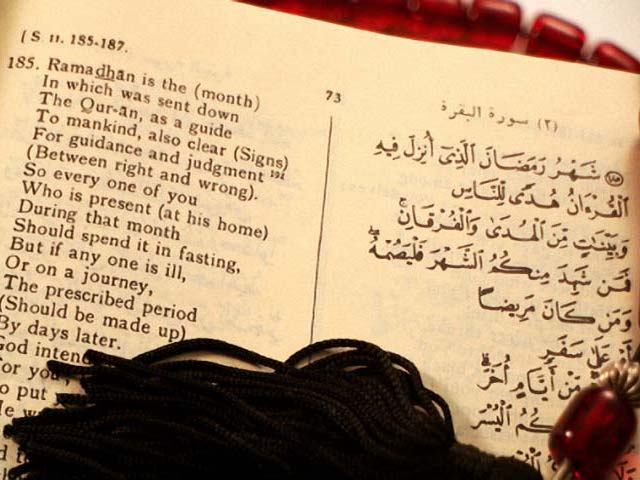 ( S. II. 185-187.
73
(٢) سورة البقرة
185. Ramadhān is the (month)
In which was sent down
The Qur-ān, as a guide
To mankind, also clear (Signs)
For guidance and judgment 194
(Between right and wrong).
So every one of you
Who is present (at his home)
During that month
Should spend it in fasting,
But if any one is ill,
Or on a journey,
The prescribed period
(Should be made up)
By days later.
God
for you
to put
He
شَهْرُ رَمَضَانَ الَّذِىٓ أُنزِلَ فِيهِ
الْقُرْءَانُ هُدًى لِّلنَّاسِ
وَبَيِّنَٰتٍ مِّنَ الْهُدَىٰ وَالْفُرْقَانِ ۚ
فَمَن شَهِدَ مِنكُمُ الشَّهْرَ فَلْيَصُمْهُ ۖ
وَمَن كَانَ مَرِيضًا
أَوْ عَلَىٰ سَفَرٍ
مِّنْ أَيَّامٍ أُخَرَ ۗ
الْيُسْرَ